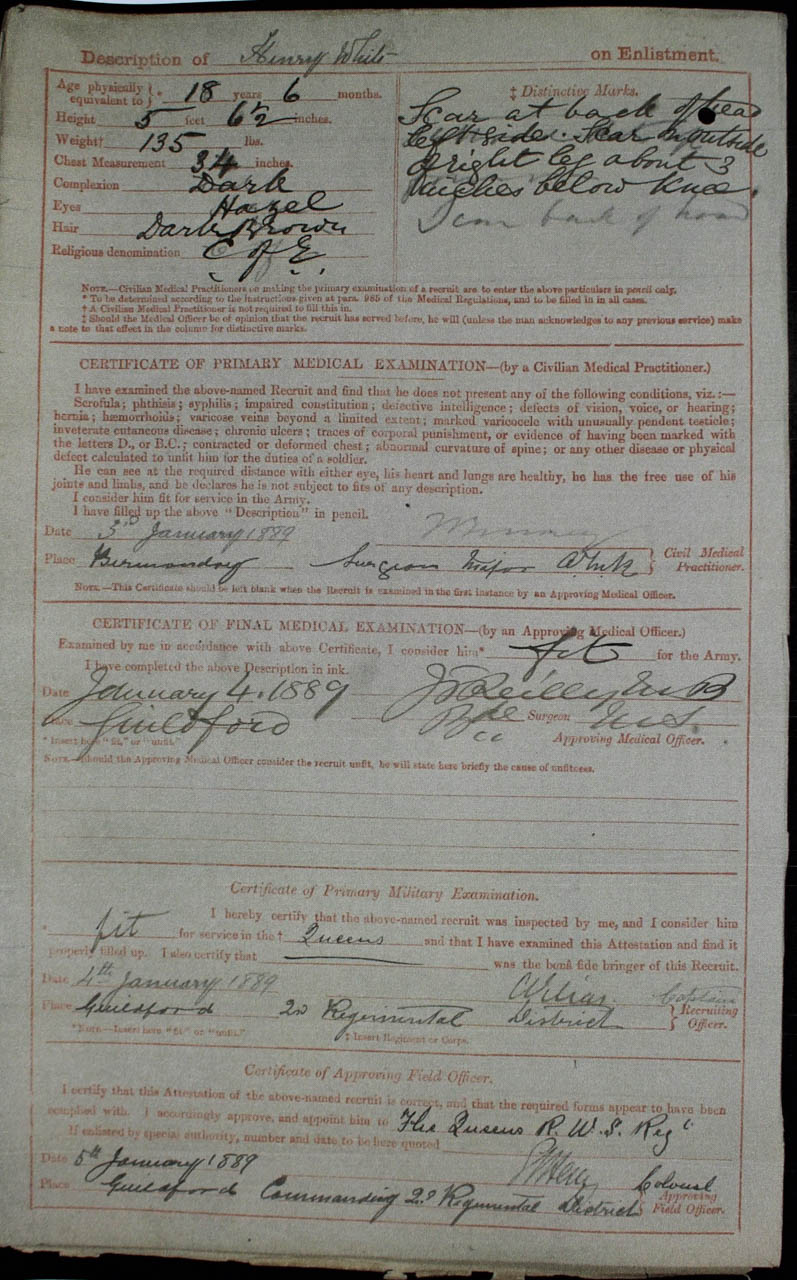 Description of Henry White on Enlistment.
Age physically equivalent to * 18 years 6 months.
Height 5 feet 6½ inches.
Weight† 135 lbs.
Chest Measurement 34 inches.
Complexion Dark
Eyes Hazel
Hair Dark Brown
Religious denomination C of E
‡ Distinctive Marks.
Scar at back of head
left side. Scar on outside
of right leg about 3
inches below knee.
Scar back of head
NOTE.—Civilian Medical Practitioners on making the primary examination of a recruit are to enter the above particulars in pencil only.
* To be determined according to the instructions given at para. 985 of the Medical Regulations, and to be filled in in all cases.
† A Civilian Medical Practitioner is not required to fill this in.
‡ Should the Medical Officer be of opinion that the recruit has served before, he will (unless the man acknowledges to any previous service) make
a note to that effect in the column for distinctive marks.
CERTIFICATE OF PRIMARY MEDICAL EXAMINATION—(by a Civilian Medical Practitioner.)
I have examined the above-named Recruit and find that he does not present any of the following conditions, viz.:—
Scrofula; phthisis; syphilis; impaired constitution; defective intelligence; defects of vision, voice, or hearing;
hernia; hæmorrhoids; varicose veins beyond a limited extent; marked varicocele with unusually pendent testicle;
inveterate cutaneous disease; chronic ulcers; traces of corporal punishment, or evidence of having been marked with
the letters D., or B.C.; contracted or deformed chest; abnormal curvature of spine; or any other disease or physical
defect calculated to unfit him for the duties of a soldier.
He can see at the required distance with either eye, his heart and lungs are healthy, he has the free use of his
joints and limbs, and he declares he is not subject to fits of any description.
I consider him fit for service in the Army.
I have filled up the above "Description" in pencil.
Date 3rd January 1889
Place Bermondsey Surgeon Major Civil Medical Practitioner.
NOTE.—This Certificate should be left blank when the Recruit is examined in the first instance by an Approving Medical Officer.
CERTIFICATE OF FINAL MEDICAL EXAMINATION—(by an Approving Medical Officer.)
Examined by me in accordance with above Certificate, I consider him* fit for the Army.
I have completed the above Description in ink.
Date January 4. 1889 J. Reilly M B
Place Guildford Surgeon M.S.
* Insert here "fit," or "unfit." Approving Medical Officer.
NOTE.—Should the Approving Medical Officer consider the recruit unfit, he will state here briefly the cause of unfitness.
Certificate of Primary Military Examination.
I hereby certify that the above-named recruit was inspected by me, and I consider him
* fit for service in the † Queens and that I have examined this Attestation and find it
properly filled up. I also certify that was the bonâ fide bringer of this Recruit.
Date 4th January 1889 Captain
Place Guildford 2nd Regimental District Recruiting Officer.
*NOTE—Insert here "fit" or "unfit." ‡ Insert Regiment or Corps.
Certificate of Approving Field Officer.
I certify that this Attestation of the above-named recruit is correct, and that the required forms appear to have been
complied with. I accordingly approve, and appoint him to The Queens R. W. S. Regt
If enlisted by special authority, number and date to be here quoted
Date 5th January 1889 Colonel
Place Guildford Commanding 2d Regimental District Approving Field Officer.